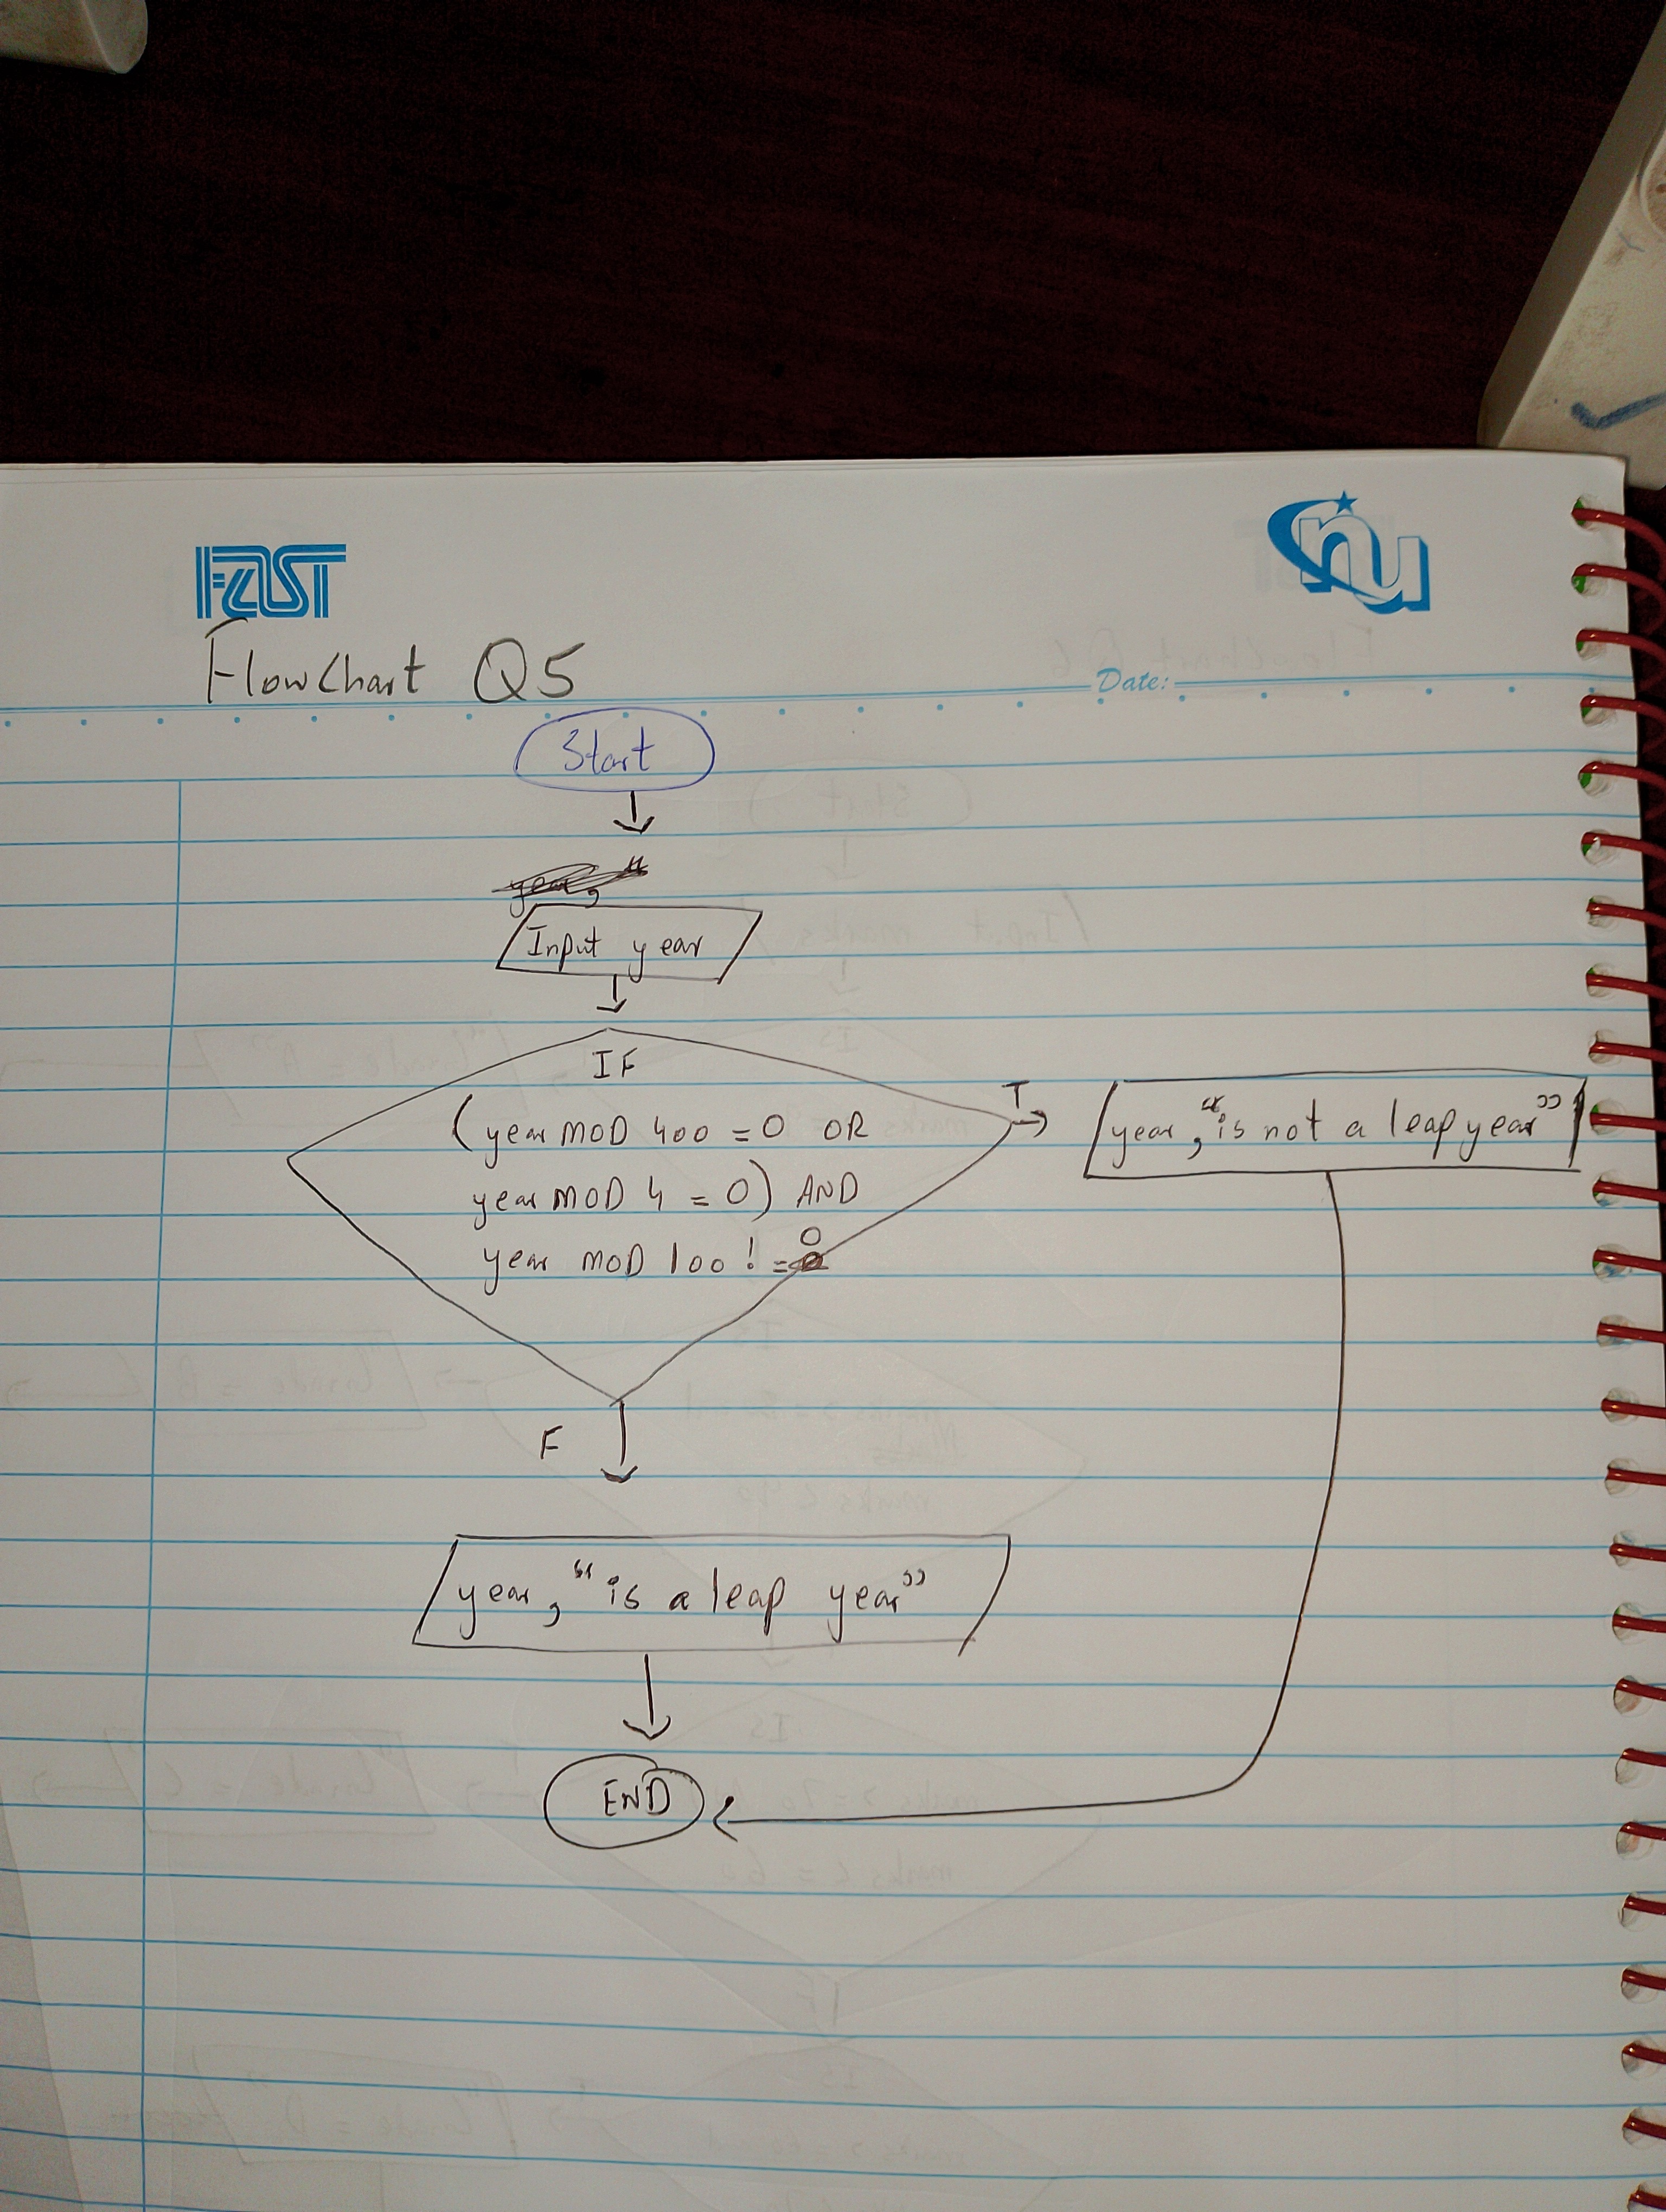 FAST
nu
Flowchart Q5
Date:
Start
Input year
IF
(year MOD 400 = 0 OR
year MOD 4 = 0) AND
year MOD 100 != 0
T
year, "is not a leap year"
F
year, "is a leap year"
END